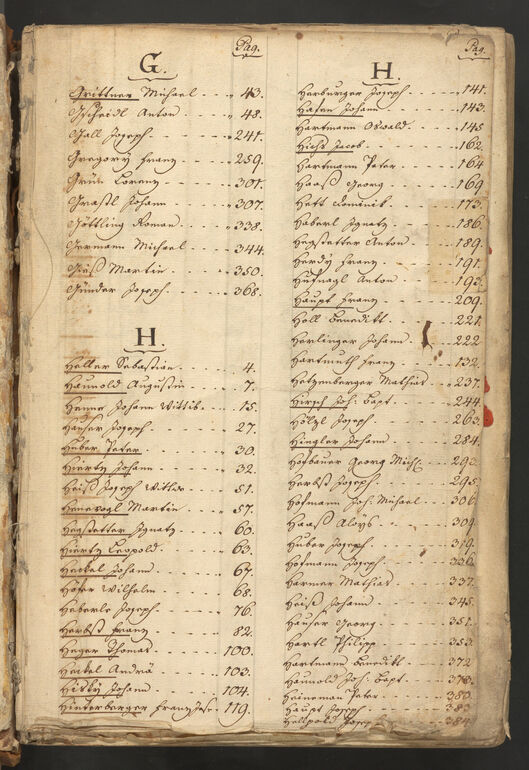 Pag.
G.
Grittner Michael - - - 43.
Gscheidl Anton - - - 48.
Gall Joseph - - - - 241.
Gregory Franz - - - - 259.
Grün Lorenz - - - - 301.
Grastl Johann - - - - 307.
Göttling Roman - - - - 338.
Germann Michael - - - 344.
Martin - - - - 350.
Günder Joseph - - - - 368.
H.
Heller Sebastian - - - - 4.
Haunold Augustin - - - 7.
Henne Johann Wittib - - - 15.
Hauser Joseph - - - - 27.
Huber Peter - - - - 30.
Hiertz Johann - - - - 32.
Heiß Joseph - - - 51.
Martin - - - 57.
Hegstetter Ignatz - - - 60.
Hiertz Leopold - - - - 63.
Heckel Johann - - - - 67.
Höfer Wilhelm - - - - 68.
Haberle Joseph - - - - 76.
Herbst Franz - - - - 82.
Heger Thomas - - - - 100.
Heckel Andrä - - - - 103.
Johann - - - - 104.
Hinterberger Franz Jos: 119.
Pag.
H.
Harburger Joseph - - - 141.
Hafen Johann - - - 143.
Hartmann Oswald - - - 145
Jacob - - - - 162.
Hartmann Peter - - - - 164
Haaß Georg - - - - 169
Hett Dominik - - - - 173.
Haberl Ignatz - - - - 186.
Hegstetter Anton - - - 189.
Herdy Franz - - - - 191.
Hufnagl Anton - - - - 193.
Haupt Franz - - - - 209.
Holl Benedikt - - - - 221.
Herlinger Johann - - - 222
Hartmuth Franz - - - - 132.
Hetzenberger Mathias - - 237.
Hirsch Joh: Bapt. - - - 244.
Hölzl Joseph - - - - 263.
Hingler Johann - - - - 284.
Hofbauer Georg Mich: - - 293.
Herbst Joseph - - - - 295.
Hofmann Joh: Michael - - 306.
Haaß Aloÿs - - - - 309.
Huber Joseph - - - - 319.
Hofmann Joseph - - - - 336.
Harmer Mathias - - - 337.
Heiß Johann - - - - 345.
Hauser Georg - - - - 351.
Hartl Philipp - - - - 353.
Hartmann Benedikt - - 372
Haunold Joh: Bapt. - - - 378.
Heineman Peter - - - 383.
Haupt Joseph - - - - 383
Joseph - - - 384.